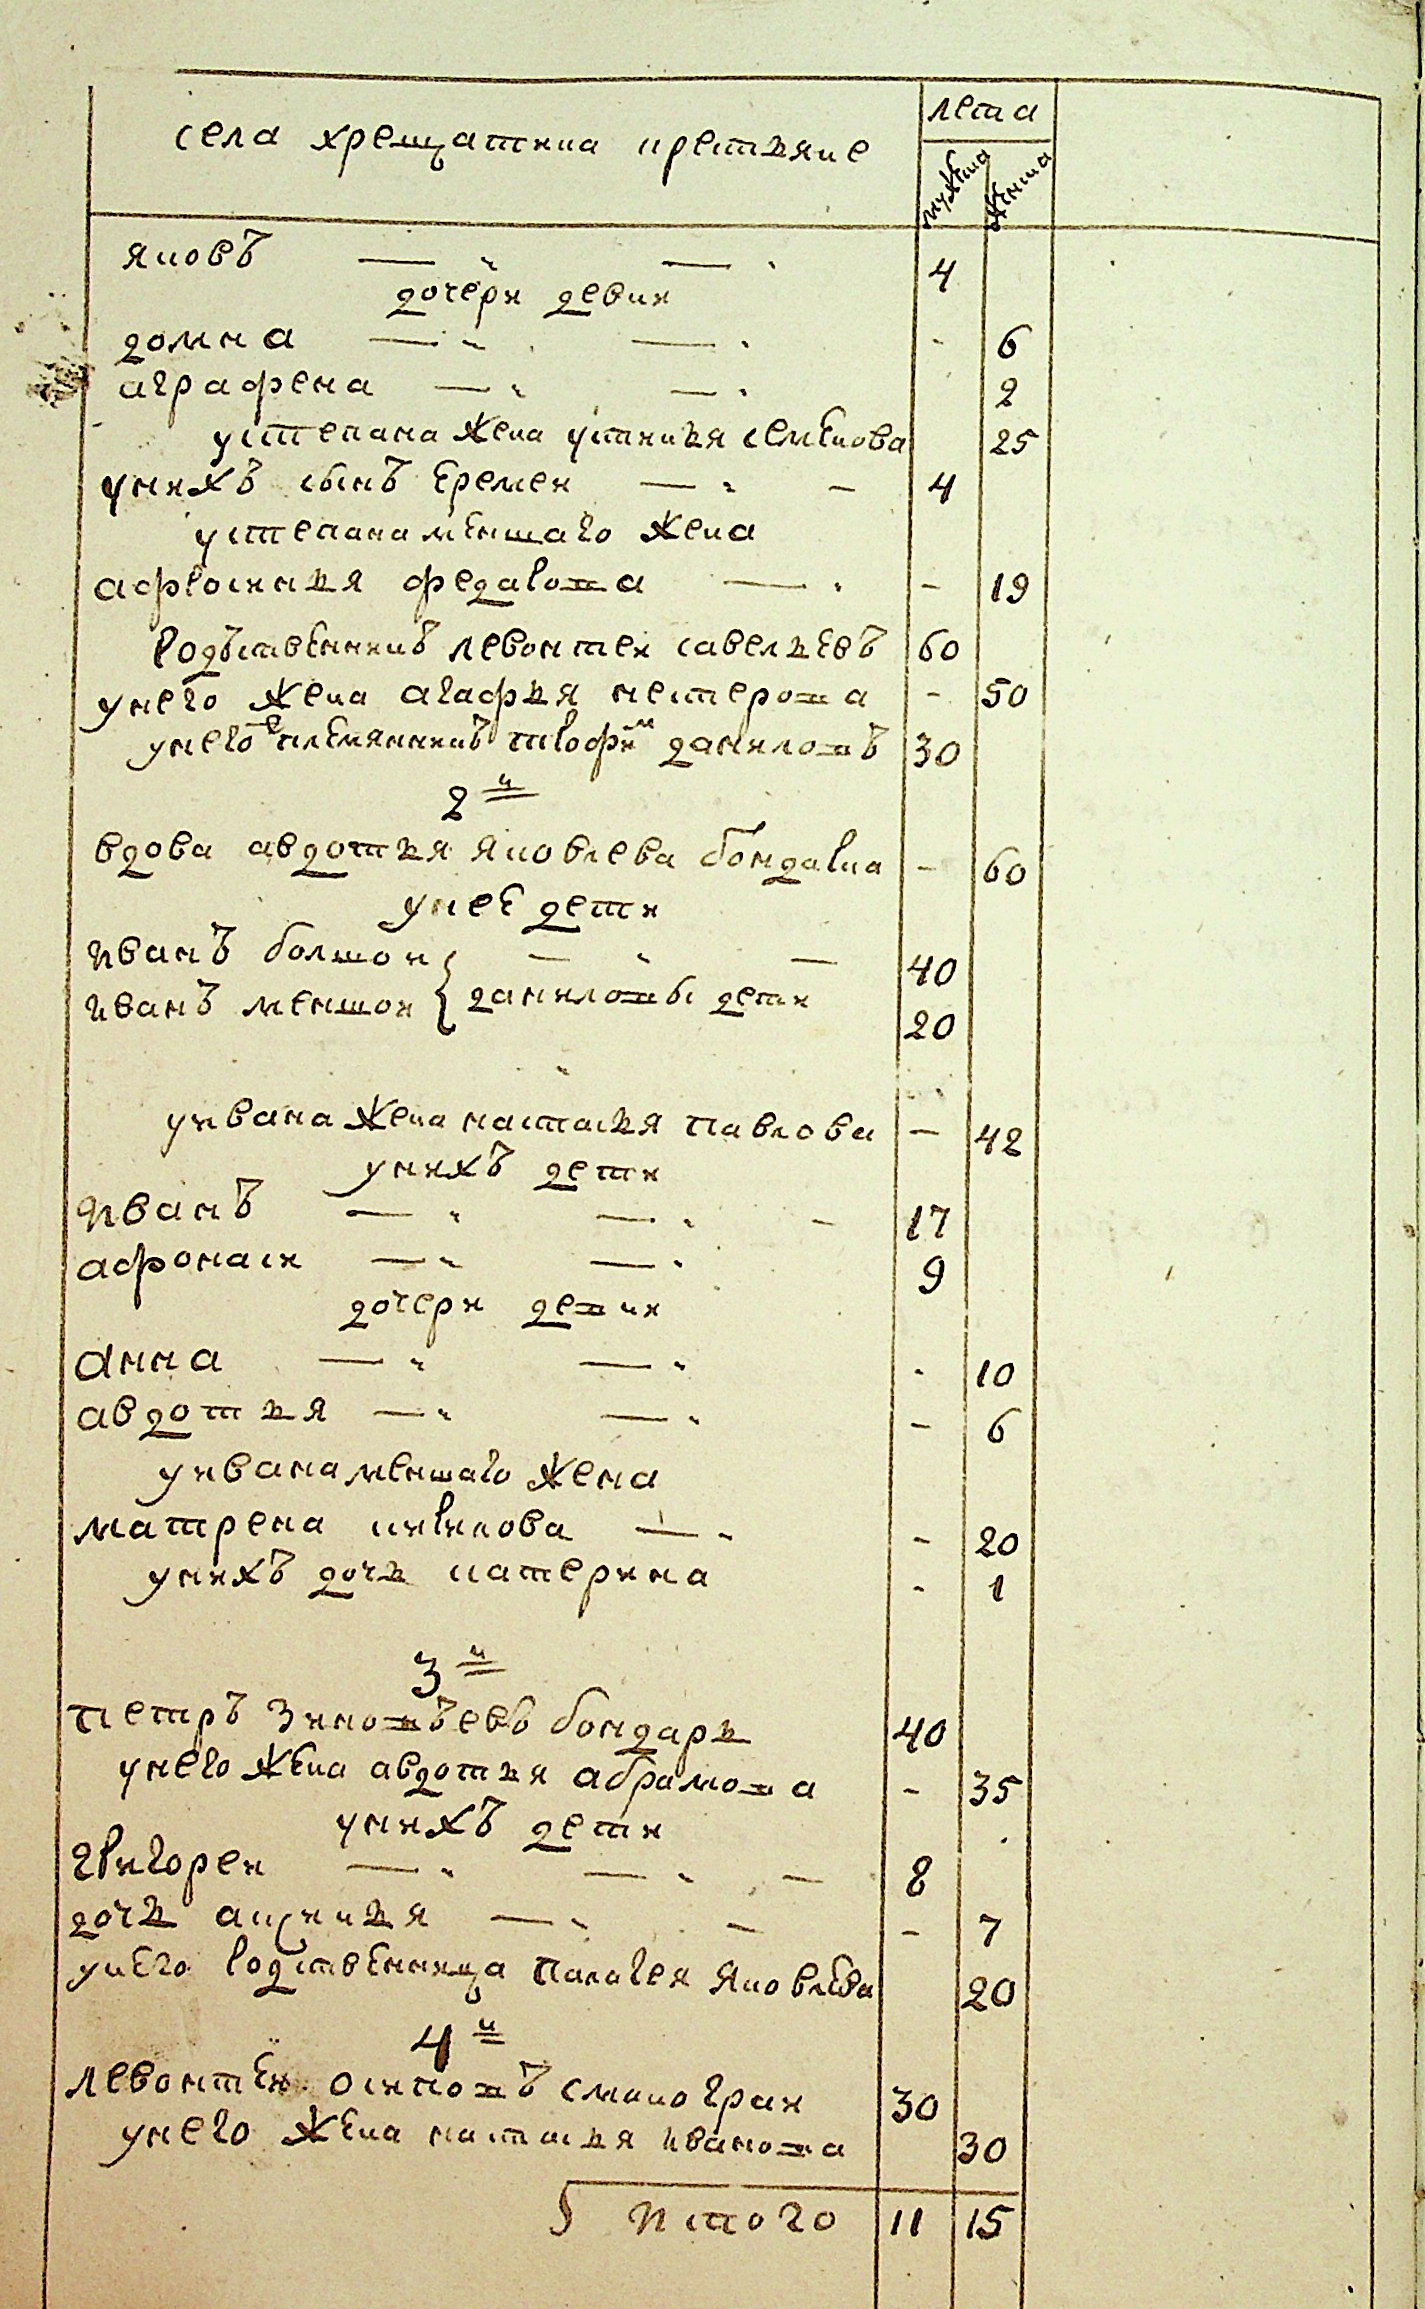 села хрещатика крестьяне
лета
мужеска
женска
яковъ — „ — „ 4
дочери девки
домна — „ — „ - 6
аграфена — „ — „ 2
устепана жена устинья семенова 25
унихъ сынъ еремей — „ — 4
устепана меншаго жена
афросинья федарова — „ - 19
родъственникъ левонтей савельевъ 60
унего жена агафья нестерова - 50
унего племянникъ трофим даниловъ 30
2й
вдова авдотья яковлева бондарка - 60
унее дети
иванъ болшой — „ — 40
иванъ меншой { даниловы дети 20
уивана жена настасья павлова - 42
унихъ дети
иванъ — „ — „ - 17
афонасй — „ — „ 9
дочери девки
анна — „ — „ - 10
авдотья — „ — „ - 6
уивана меншаго жена
матрена кирикова — „ - 20
унихъ дочь катерина - 1
3й
петръ зиновъевъ бондарь 40
унего жена авдотья абрамова - 35
унихъ дети
григорей — „ — „ — 8
дочь аксинья — „ — - 7
унего родственница палагея яковлева 20
4й
левонтей осиповъ смакограй 30
унего жена настасья иванова 30
итого 11 15